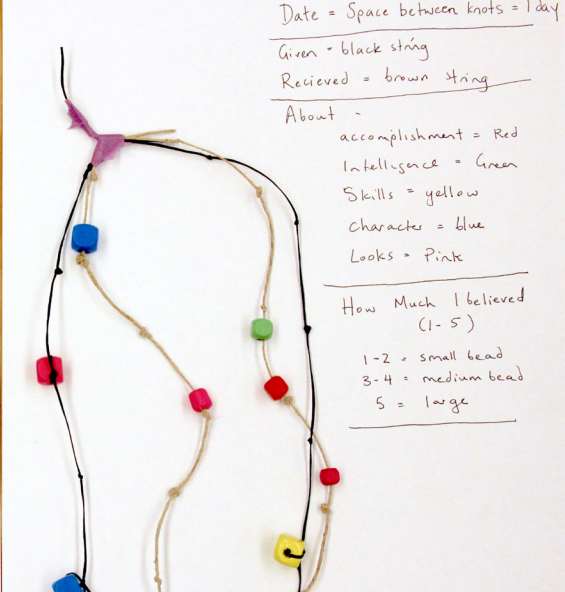 Date = Space between knots = 1 day
Given = black string
Recieved = brown string
About -
accomplishment = Red
Intelligence = Green
Skills = yellow
Character = blue
Looks = Pink
How Much I believed
(1-5)
1-2 = small bead
3-4 = medium bead
5 = large